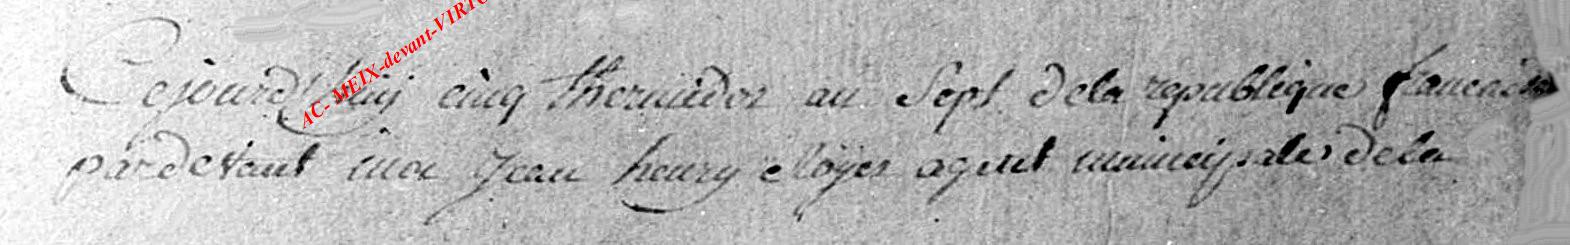 AC- MEIX-devant-VIRTO
Cejourd'huy cinq thermidor an Sept dela republique francaise
pardevant moi Jean henry agent municipale dela